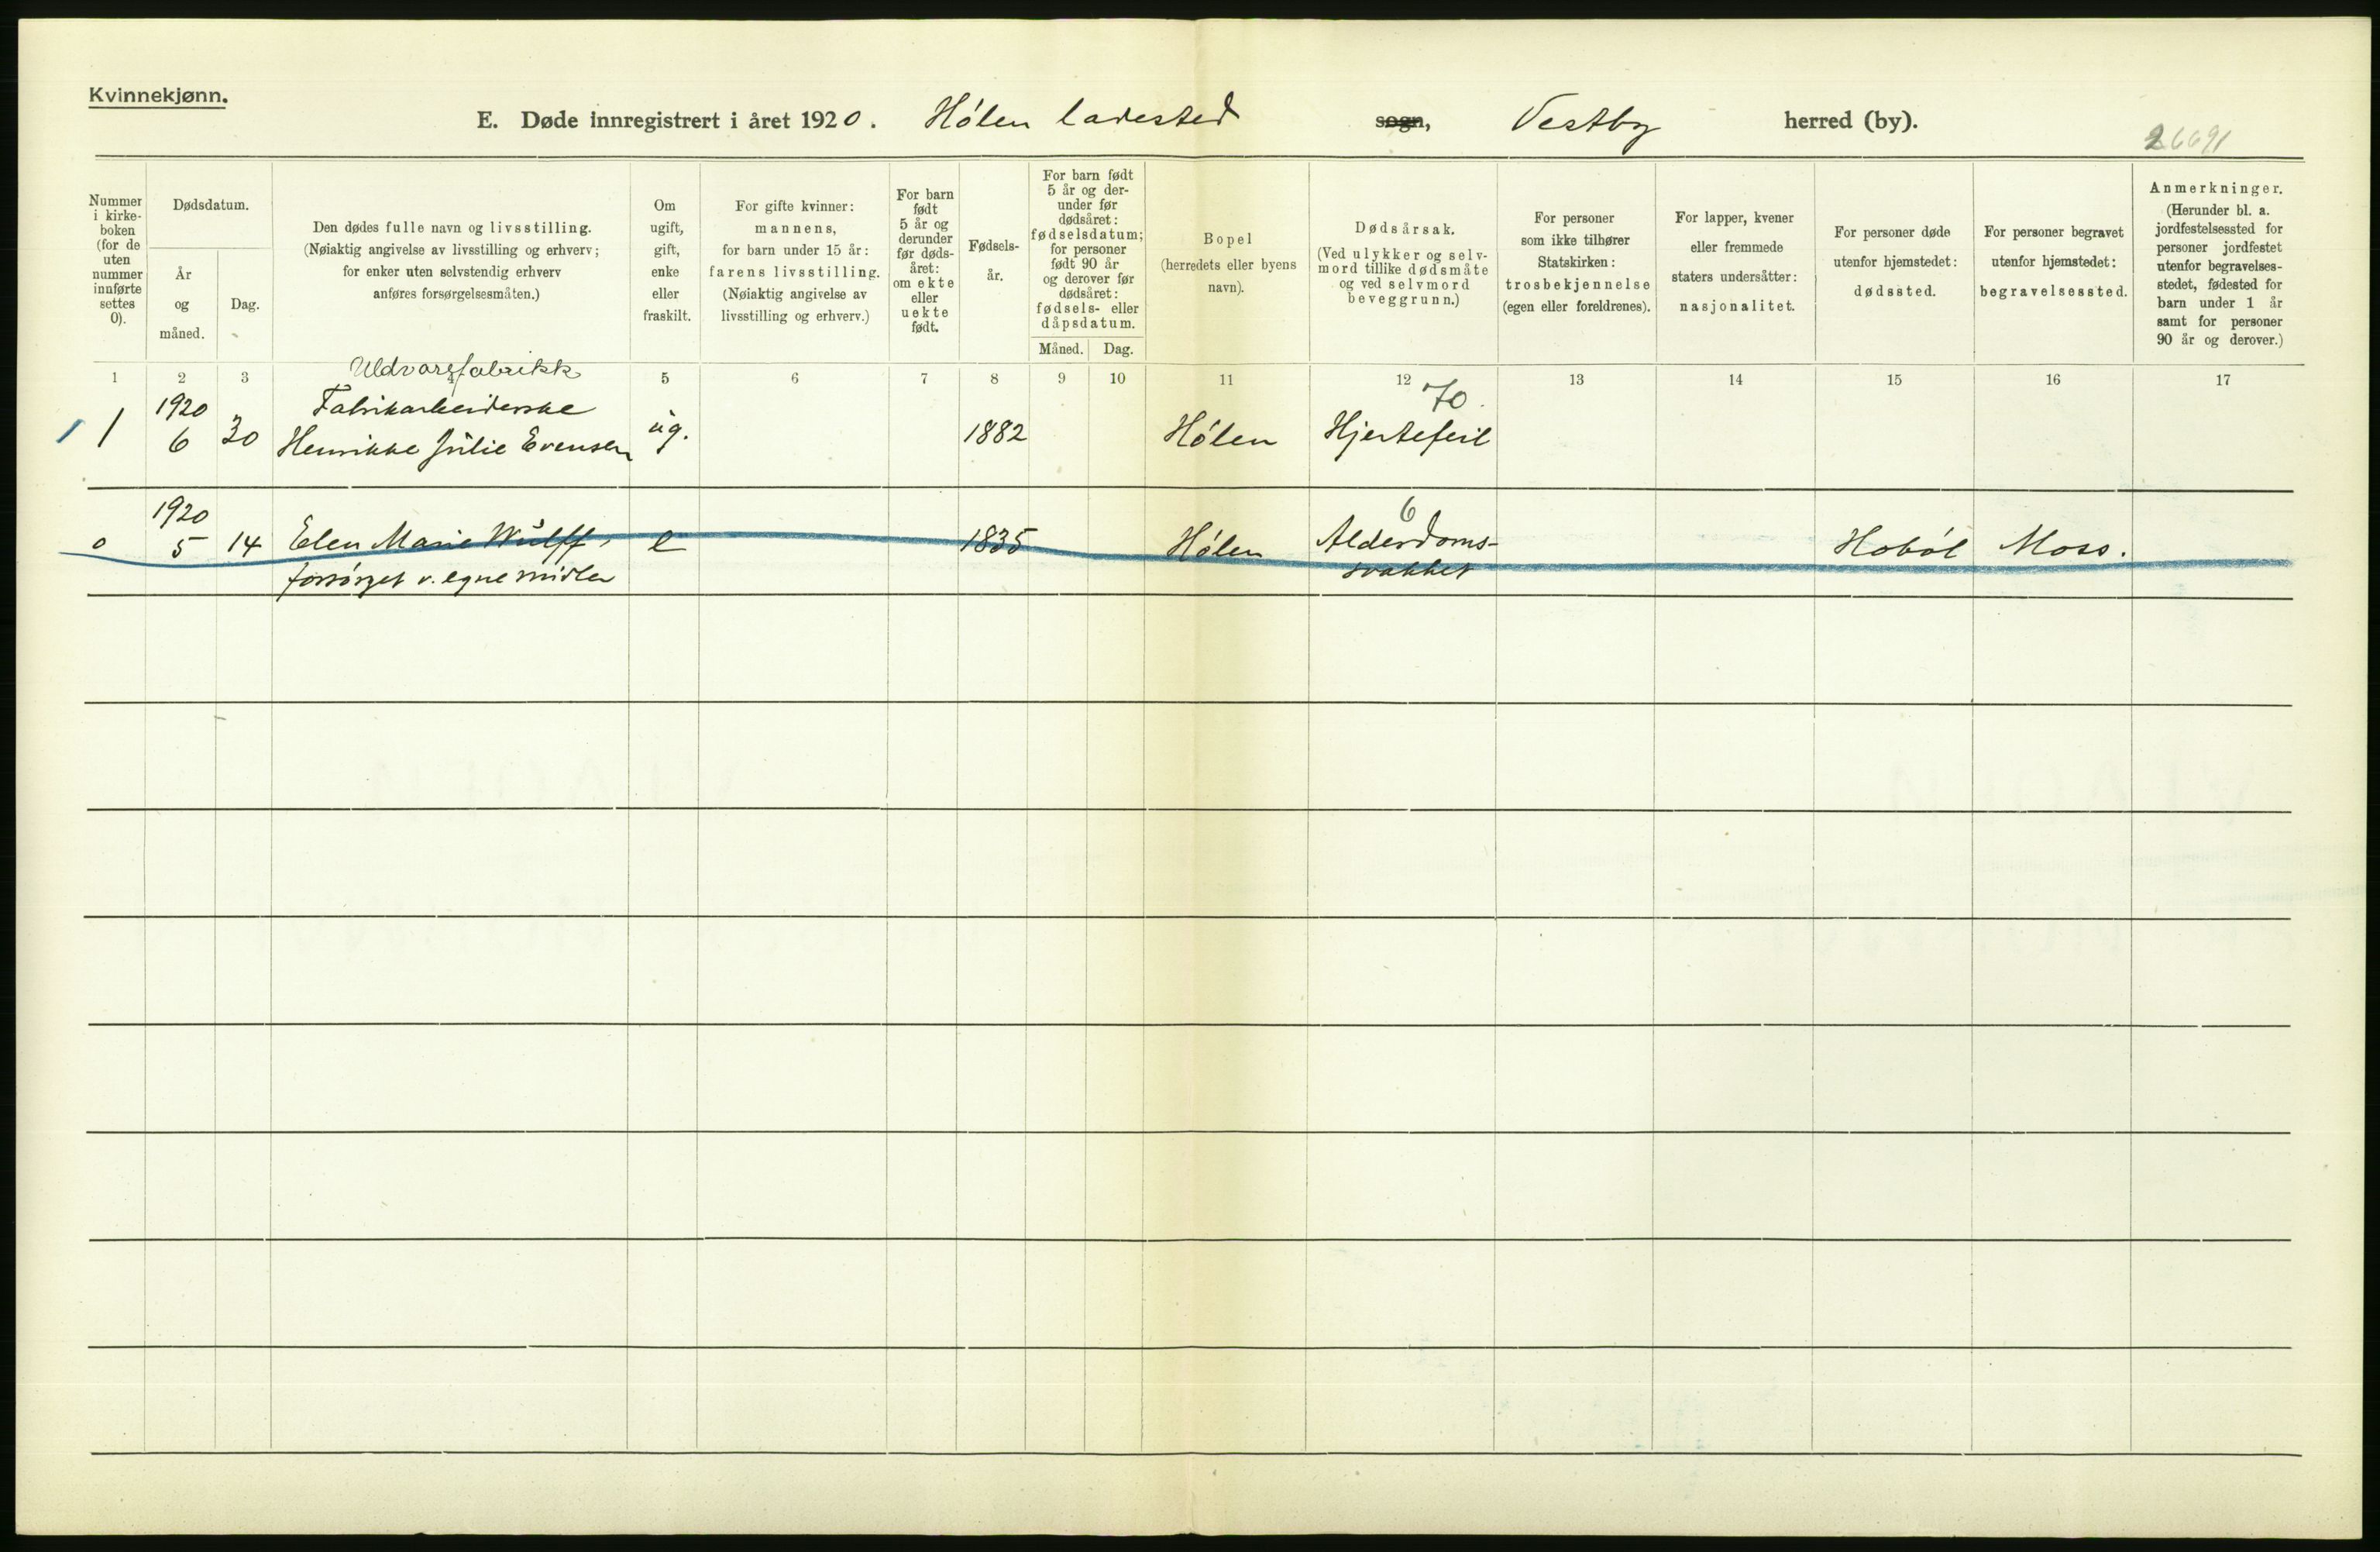 Kvinnekjønn.
E. Døde innregistrert i året 1920. Hólen ladested sogn, Vestby herred (by).
26691
Nummer
i kirke-
boken
(for de
uten
nummer
innførte
settes
0).
Dødsdatum.
År
og
måned.
Dag.
Den dødes fulle navn og livsstilling.
(Nøiaktig angivelse av livsstilling og erhverv;
for enker uten selvstendig erhverv
anføres forsørgelsesmåten.)
Om
ugift,
gift,
enke
eller
fraskilt.
For gifte kvinner:
mannens,
for barn under 15 år:
farens livsstilling.
(Nøiaktig angivelse av
livsstilling og erhverv.)
For barn
født
5 år og
derunder
før døds-
året:
om ekte
eller
uekte
født.
Fødsels-
år.
For barn født
5 år og der-
under før
dødsåret:
fødselsdatum;
for personer
født 90 år
og derover før
dødsåret:
fødsels- eller
dåpsdatum.
Måned. Dag.
Bopel
(herredets eller byens
navn).
Dødsårsak.
(Ved ulykker og selv-
mord tillike dødsmåte
og ved selvmord
beveggrunn.)
For personer
som ikke tilhører
Statskirken:
trosbekjennelse
(egen eller foreldrenes).
For lapper, kvener
eller fremmede
staters undersåtter:
nasjonalitet.
For personer døde
utenfor hjemstedet:
dødssted.
For personer begravet
utenfor hjemstedet:
begravelsessted.
Anmerkninger.
(Herunder bl. a.
jordfestelsessted for
personer jordfestet
utenfor begravelses-
stedet, fødested for
barn under 1 år
samt for personer
90 år og derover.)
1 2 3 4 5 6 7 8 9 10 11 12 13 14 15 16 17
Uldvarefabrikk
1920 Fabrikarbeiderske 70.
1 1 6 30 Henrikke Julie Evensen ug. 1882 Hólen Hjertefeil
1920 6
0 5 14 Elen Marie Wulff, e 1835 Hólen Alderdoms- Hoból Moss.
forsórget v. egne midler svakhet